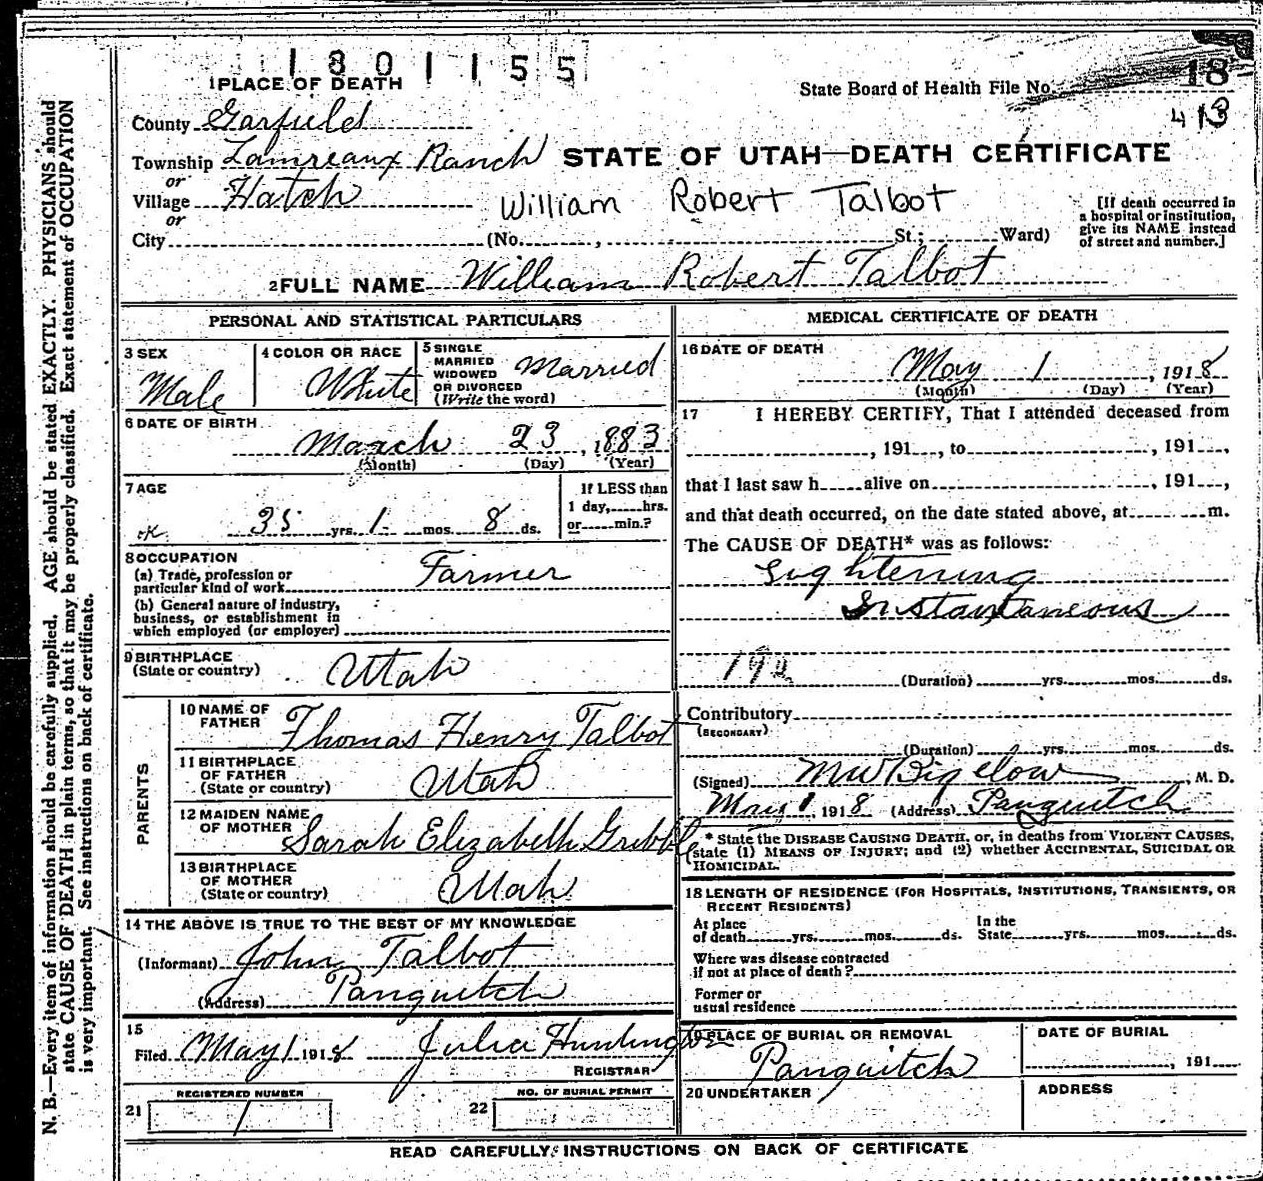 1301155
1 PLACE OF DEATH
State Board of Health File No. 18
413
County Garfield
Township Lamreaux Ranch
STATE OF UTAH—DEATH CERTIFICATE
or
Village Hatch
or
William Robert Talbot
[If death occurred in
a hospital or institution,
give its NAME instead
of street and number.]
City (No. , St.; Ward)
2 FULL NAME William Robert Talbot
PERSONAL AND STATISTICAL PARTICULARS
3 SEX
Male
4 COLOR OR RACE
White
5 SINGLE
MARRIED
WIDOWED
OR DIVORCED
(Write the word)
Married
6 DATE OF BIRTH
March 23, 1883
(Month) (Day) (Year)
7 AGE
If LESS than
1 day, hrs.
or min.?
ok 35 yrs. 1 mos. 8 ds.
8 OCCUPATION
(a) Trade, profession or
particular kind of work Farmer
(b) General nature of industry,
business, or establishment in
which employed (or employer)
9 BIRTHPLACE
(State or country) Utah
PARENTS
10 NAME OF
FATHER Thomas Henry Talbot
11 BIRTHPLACE
OF FATHER
(State or country) Utah
12 MAIDEN NAME
OF MOTHER Sarah Elizabeth Gribble
13 BIRTHPLACE
OF MOTHER
(State or country) Utah
14 THE ABOVE IS TRUE TO THE BEST OF MY KNOWLEDGE
(Informant) John Talbot
(Address) Panguitch
15
Filed May 1 1918 Julia Huntington
REGISTRAR
REGISTERED NUMBER
21 1
NO. OF BURIAL PERMIT
22
MEDICAL CERTIFICATE OF DEATH
16 DATE OF DEATH
May 1, 1918
(Month) (Day) (Year)
17 I HEREBY CERTIFY, That I attended deceased from
, 191 , to , 191 ,
that I last saw h alive on , 191 ,
and that death occurred, on the date stated above, at m.
The CAUSE OF DEATH* was as follows:
Lightening
Instantaneous
192
(Duration) yrs. mos. ds.
Contributory
(SECONDARY)
(Duration) yrs. mos. ds.
(Signed) MW Bigelow, M. D.
May 1, 1918 (Address) Panguitch
* State the DISEASE CAUSING DEATH, or, in deaths from VIOLENT CAUSES,
state (1) MEANS OF INJURY; and (2) whether ACCIDENTAL, SUICIDAL OR
HOMICIDAL.
18 LENGTH OF RESIDENCE (FOR HOSPITALS, INSTITUTIONS, TRANSIENTS, OR
RECENT RESIDENTS)
At place
of death yrs. mos. ds.
In the
State yrs. mos. ds.
Where was disease contracted
if not at place of death?
Former or
usual residence
19 PLACE OF BURIAL OR REMOVAL
Panguitch
DATE OF BURIAL
, 191
20 UNDERTAKER
ADDRESS
READ CAREFULLY INSTRUCTIONS ON BACK OF CERTIFICATE
N. B.—Every item of information should be carefully supplied. AGE should be stated EXACTLY. PHYSICIANS should
state CAUSE OF DEATH in plain terms, so that it may be properly classified. Exact statement of OCCUPATION
is very important. See instructions on back of certificate.